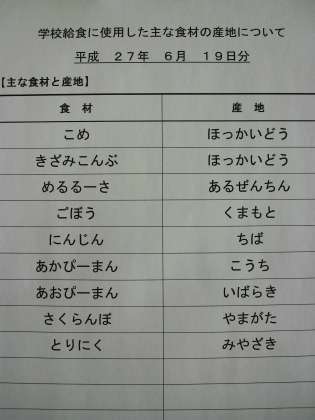 学校給食に使用した主な食材の産地について
平成 27年 6月 19日分
【主な食材と産地】
食 材 産 地
こめ ほっかいどう
きざみこんぶ ほっかいどう
めるるーさ あるぜんちん
ごぼう くまもと
にんじん ちば
あかぴーまん こうち
あおぴーまん いばらき
さくらんぼ やまがた
とりにく みやざき